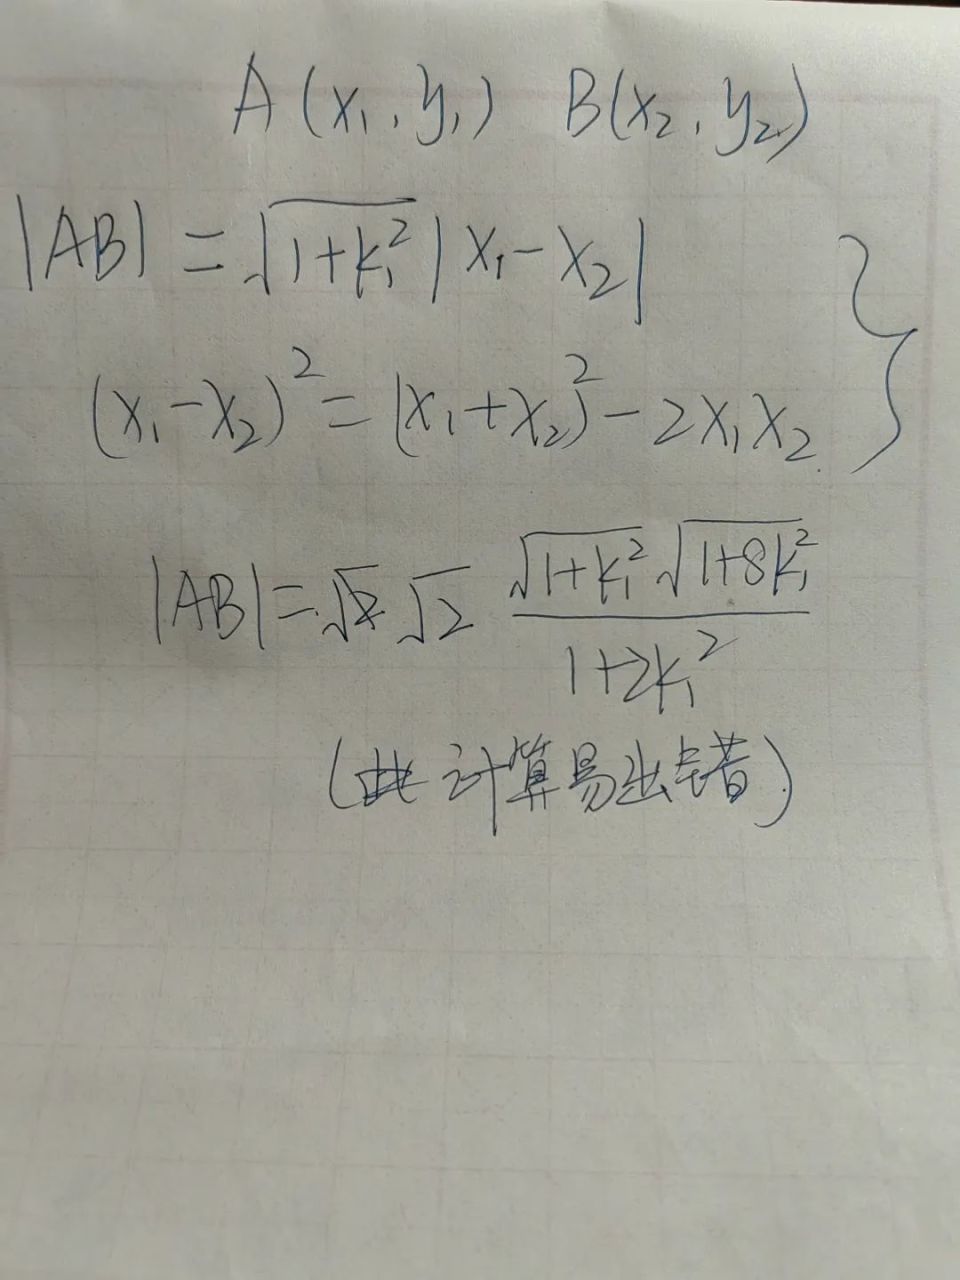 A(x₁,y₁) B(x₂,y₂)
|AB| = √(1+k₁²) |x₁-x₂|
(x₁-x₂)² = (x₁+x₂)² - 2x₁x₂
|AB| = √2 √(1+k₁²) √(1+8k₁²) / (1+2k₁²)
(此计算易出错)